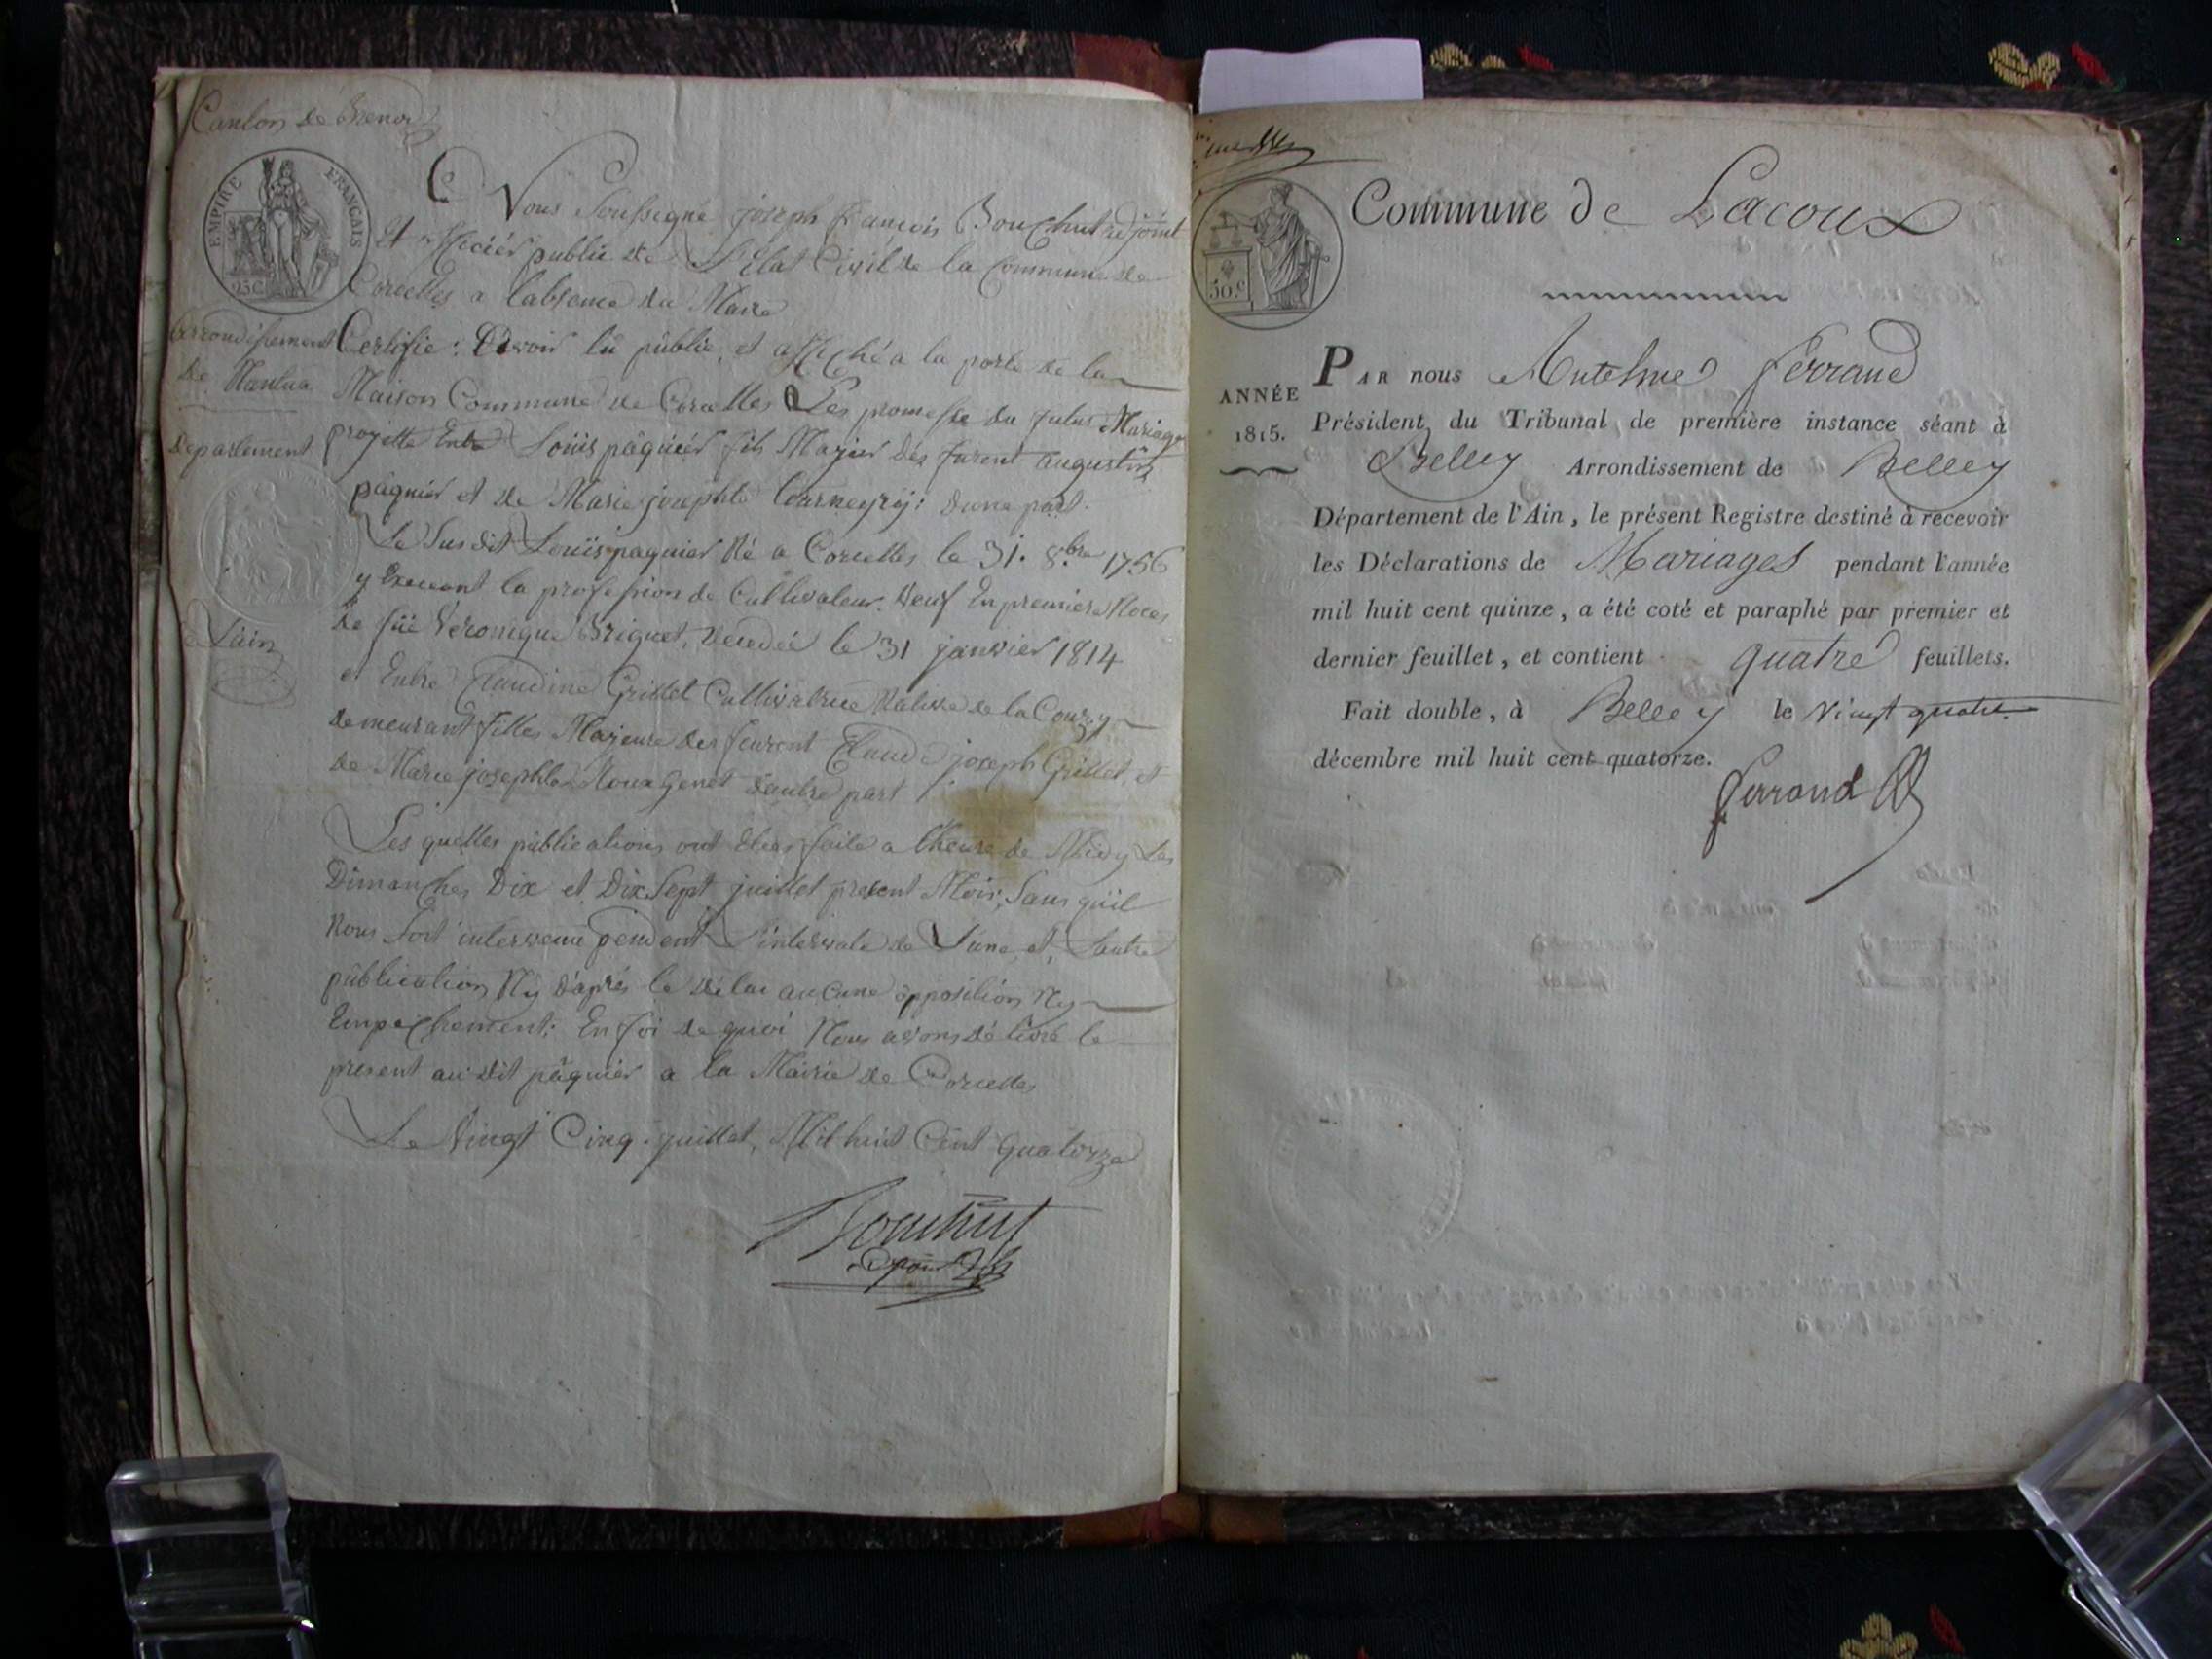 Canton de Brenod
EMPIRE FRANÇAIS
25 C.
Nous Soussigné joseph françois Bouchut adjoint
et officier public de L'Etat Civil de la Commune de
Corcelles a labsence du Maire
Arrondissement
de Nantua
Departement
de Lain
Certifie: Davoir lû públie, et affiché a la porte de la
Maison Commune de Corcelles Les promesse du futur Mariage
projetté Entre Louis pâquiér fils Majeur des furent augustin
pâquiér et de Marie josephte Tourneyrÿ: dune part.
Le Susdit Louis paquier Né a Corcelles le 31. 8.bre 1756
y Exercent la profession de Cultivateur. Veuf En premiere Noces
de füe Véronique Briguet, decedée le 31 janvier 1814
et Entre Claudine Grillet Cultivatrice Native de la Couz y
demeurant filles Majeure des feurent Claude joseph Grillet, et
de Marie josephte dautre part
Les quelles públications ont Etées faite a lheure de Midy Les
Dimanches Dix et Dix Sept juillet present Mois; Sans quïl
Nous Soit intervenue pendent L'intervale de L'une, et, Lautre
públication Ny daprés le délai aucune opposition Ny
Empechement: En foi de quoi Nous avons délivré le
present au dit pâquiér a la Mairie de Corcelles
Le Vingt Cinq juillet, Mil huit Cent quatorze
Bouchut
adjoint
Commune de Lacoux
50.c
ANNÉE
1815.
PAR nous Antelme ferrand
Président du Tribunal de première instance séant à
Belley Arrondissement de Belley
Département de l'Ain, le présent Registre destiné à recevoir
les Déclarations de Mariages pendant l'année
mil huit cent quinze, a été coté et paraphé par premier et
dernier feuillet, et contient quatre feuillets.
Fait double, à Belley le vingt quatre
décembre mil huit cent quatorze.
ferrand